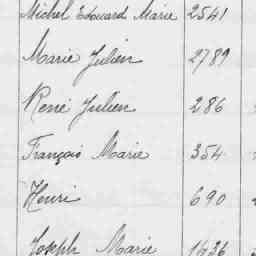 Michel Edouard Marie 2541
Marie Julien 2789
René Julien 286
François Marie 354
Henri 690
Joseph Marie 1436